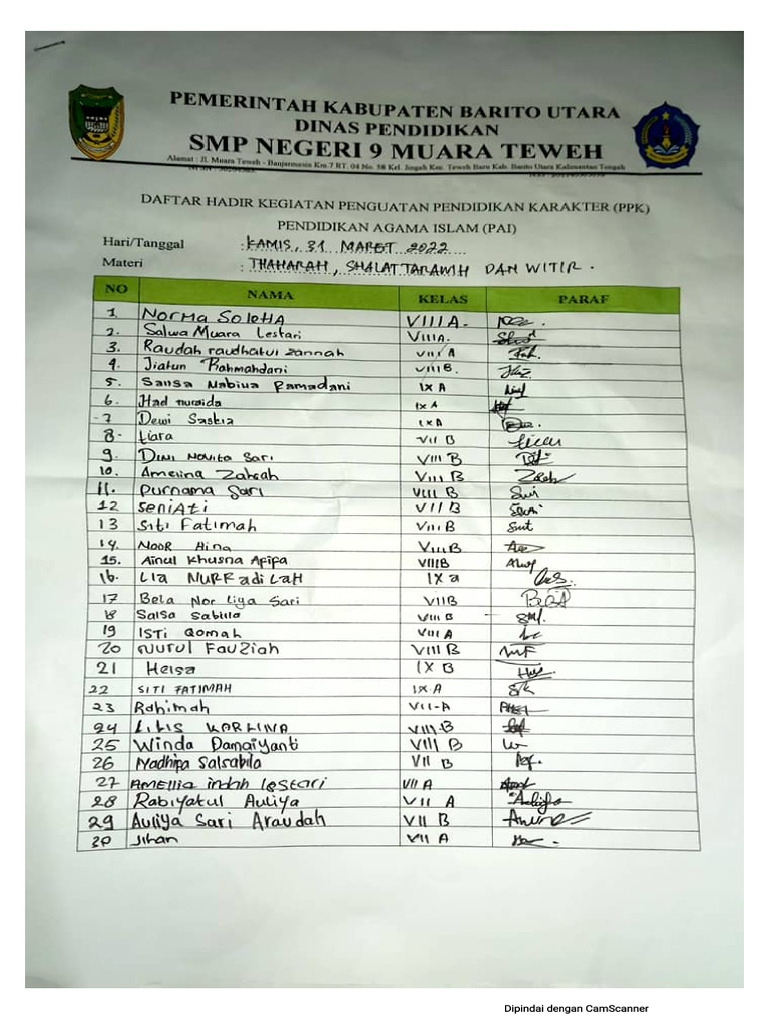 PEMERINTAH KABUPATEN BARITO UTARA
DINAS PENDIDIKAN
SMP NEGERI 9 MUARA TEWEH
Alamat : Jl. Muara Teweh - Banjarmasin Km.7 RT. 04 No. 58 Kel. Jingah Kec. Teweh Baru Kab. Barito Utara Kalimantan Tengah
DAFTAR HADIR KEGIATAN PENGUATAN PENDIDIKAN KARAKTER (PPK)
PENDIDIKAN AGAMA ISLAM (PAI)
Hari/Tanggal : KAMIS, 31 MARET 2022
Materi : THAHARAH, SHALAT TARAWIH DAN WITIR.
NO NAMA KELAS PARAF
1. Norma Soleha VIII A.
2. Salwa Muara Lestari VIIIA.
3. Raudah raudhatul zannah VIII A
4. Jiatun Rahmahdani VIII B.
5. Sansa Nabiua Ramadani IX A
6. Had nuraida IX A
7 Dewi Saskia IXA
8. tiara VII B
9. Dini Novita Sari VIII B
10. Amelina Zahrah VIII B
11. Purnama Sari VIII B
12 SeniAti VII B
13 Siti Fatimah VIII B
14. Noor Hina VIII B
15. Ainul Khusna Afifa VIIIB
16. Lia NURFadiLaH IX a
17 Bela Nor Liya Sari VIIB BELA
18 Salsa Sabilla VIII B
19 ISTI Qomah VIII A
20 Nurul Fauziah VIII B
21 Helsa IX B
22 SITI FATIMAH IX A
23 Rahimah VII-A
24 LILIS KARLINA VIII-B
25 Winda Damaiyanti VIII B
26 Nadhipa Salsabila VII B
27 Amellia indah lestari VII A
28 Rabiyatul Auliya VII A Auliya
29 Auliya Sari Araudah VII B
30 Jihan VII A
Dipindai dengan CamScanner